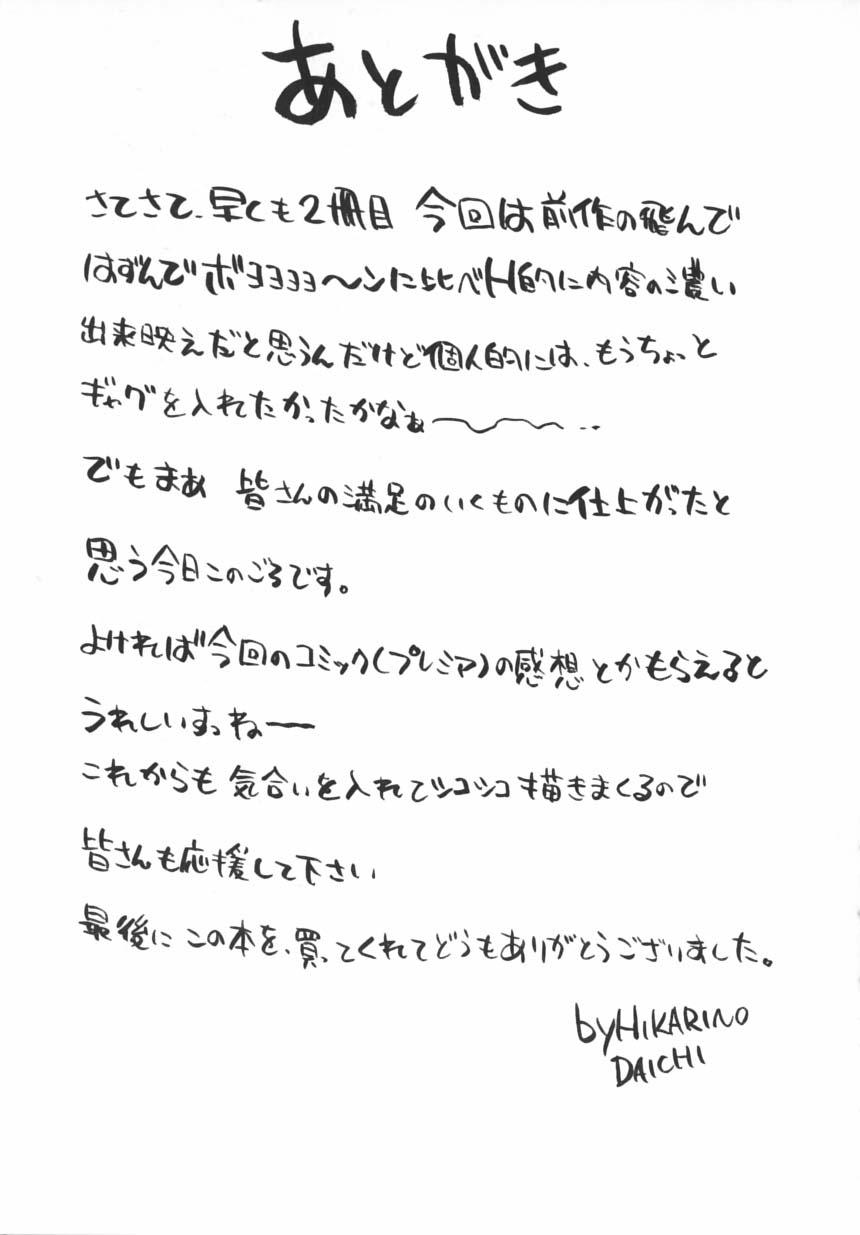 あとがき
さてさて、早くも2冊目 今回は前作の飛んで
はずんでボヨヨヨヨ〜ンに比べH的に内容の濃い
出来映えだと思うんだけど個人的には、もうちょっと
ギャグを入れたかったかなぁ〜〜〜‥
でもまあ 皆さんの満足のいくものに仕上がったと
思う今日このごろです。
よければ今回のコミック(プレミア)の感想とかもらえると
うれしいすっねー
これからも気合いを入れてシコシコ描きまくるので
皆さんも応援して下さい
最後に この本を、買ってくれてどうもありがとうございました。
byHIKARINO
DAICHI